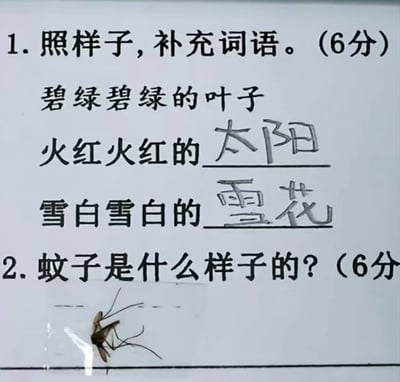 1. 照样子,补充词语。(6分)
碧绿碧绿的叶子
火红火红的太阳
雪白雪白的雪花
2. 蚊子是什么样子的?(6分